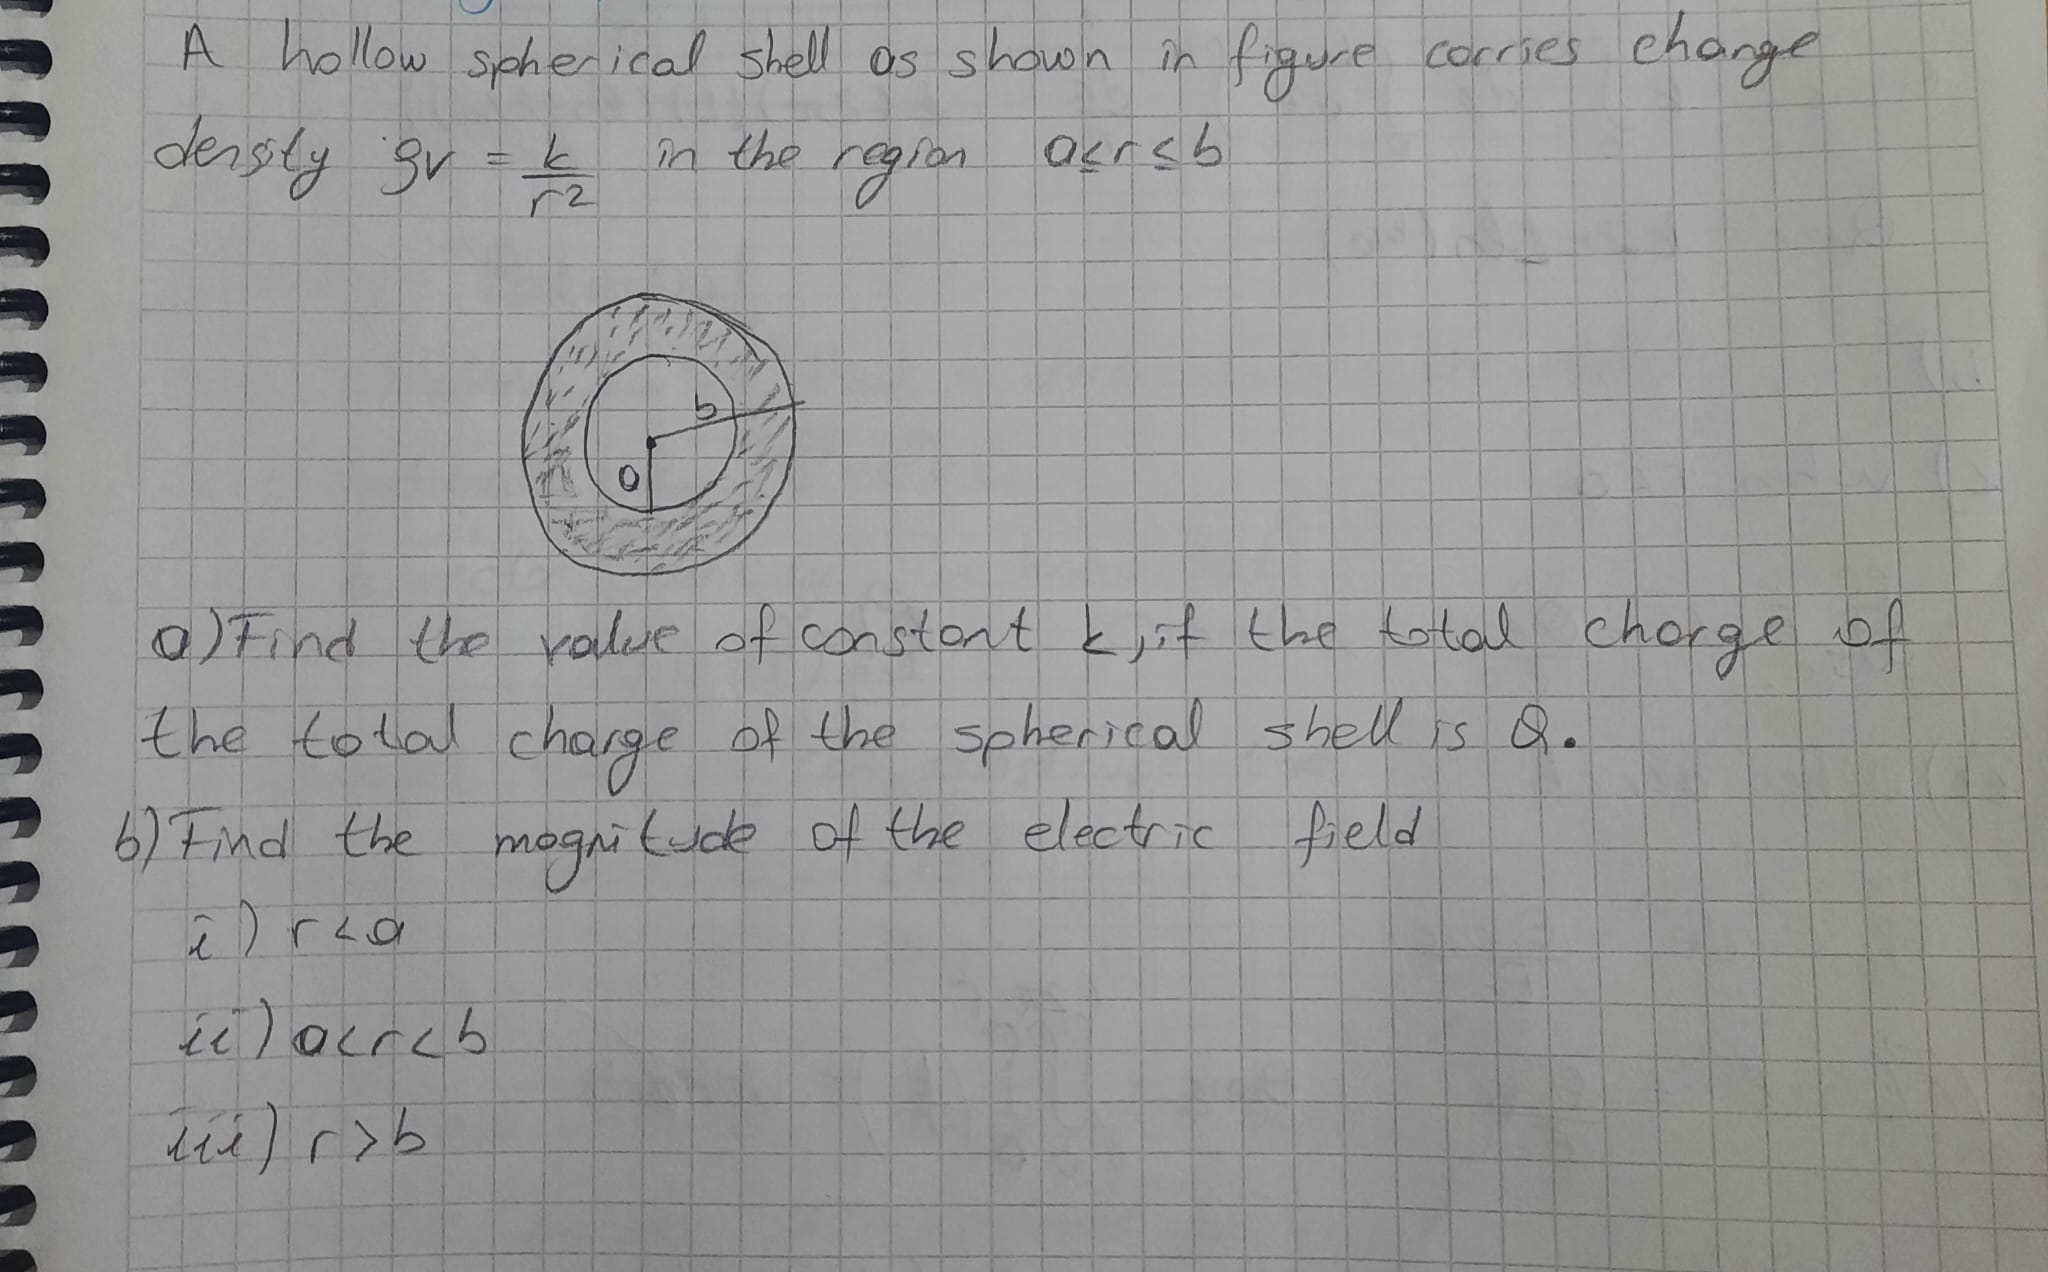 A hollow spherical shell as shown in figure carries change
density ρv = k/r² in the region a≤r≤b
b
a
a) Find the value of constant k, if the total charge of
the total charge of the spherical shell is Q.
b) Find the magnitude of the electric field
i) r<a
ii) a<r<b
iii) r>b